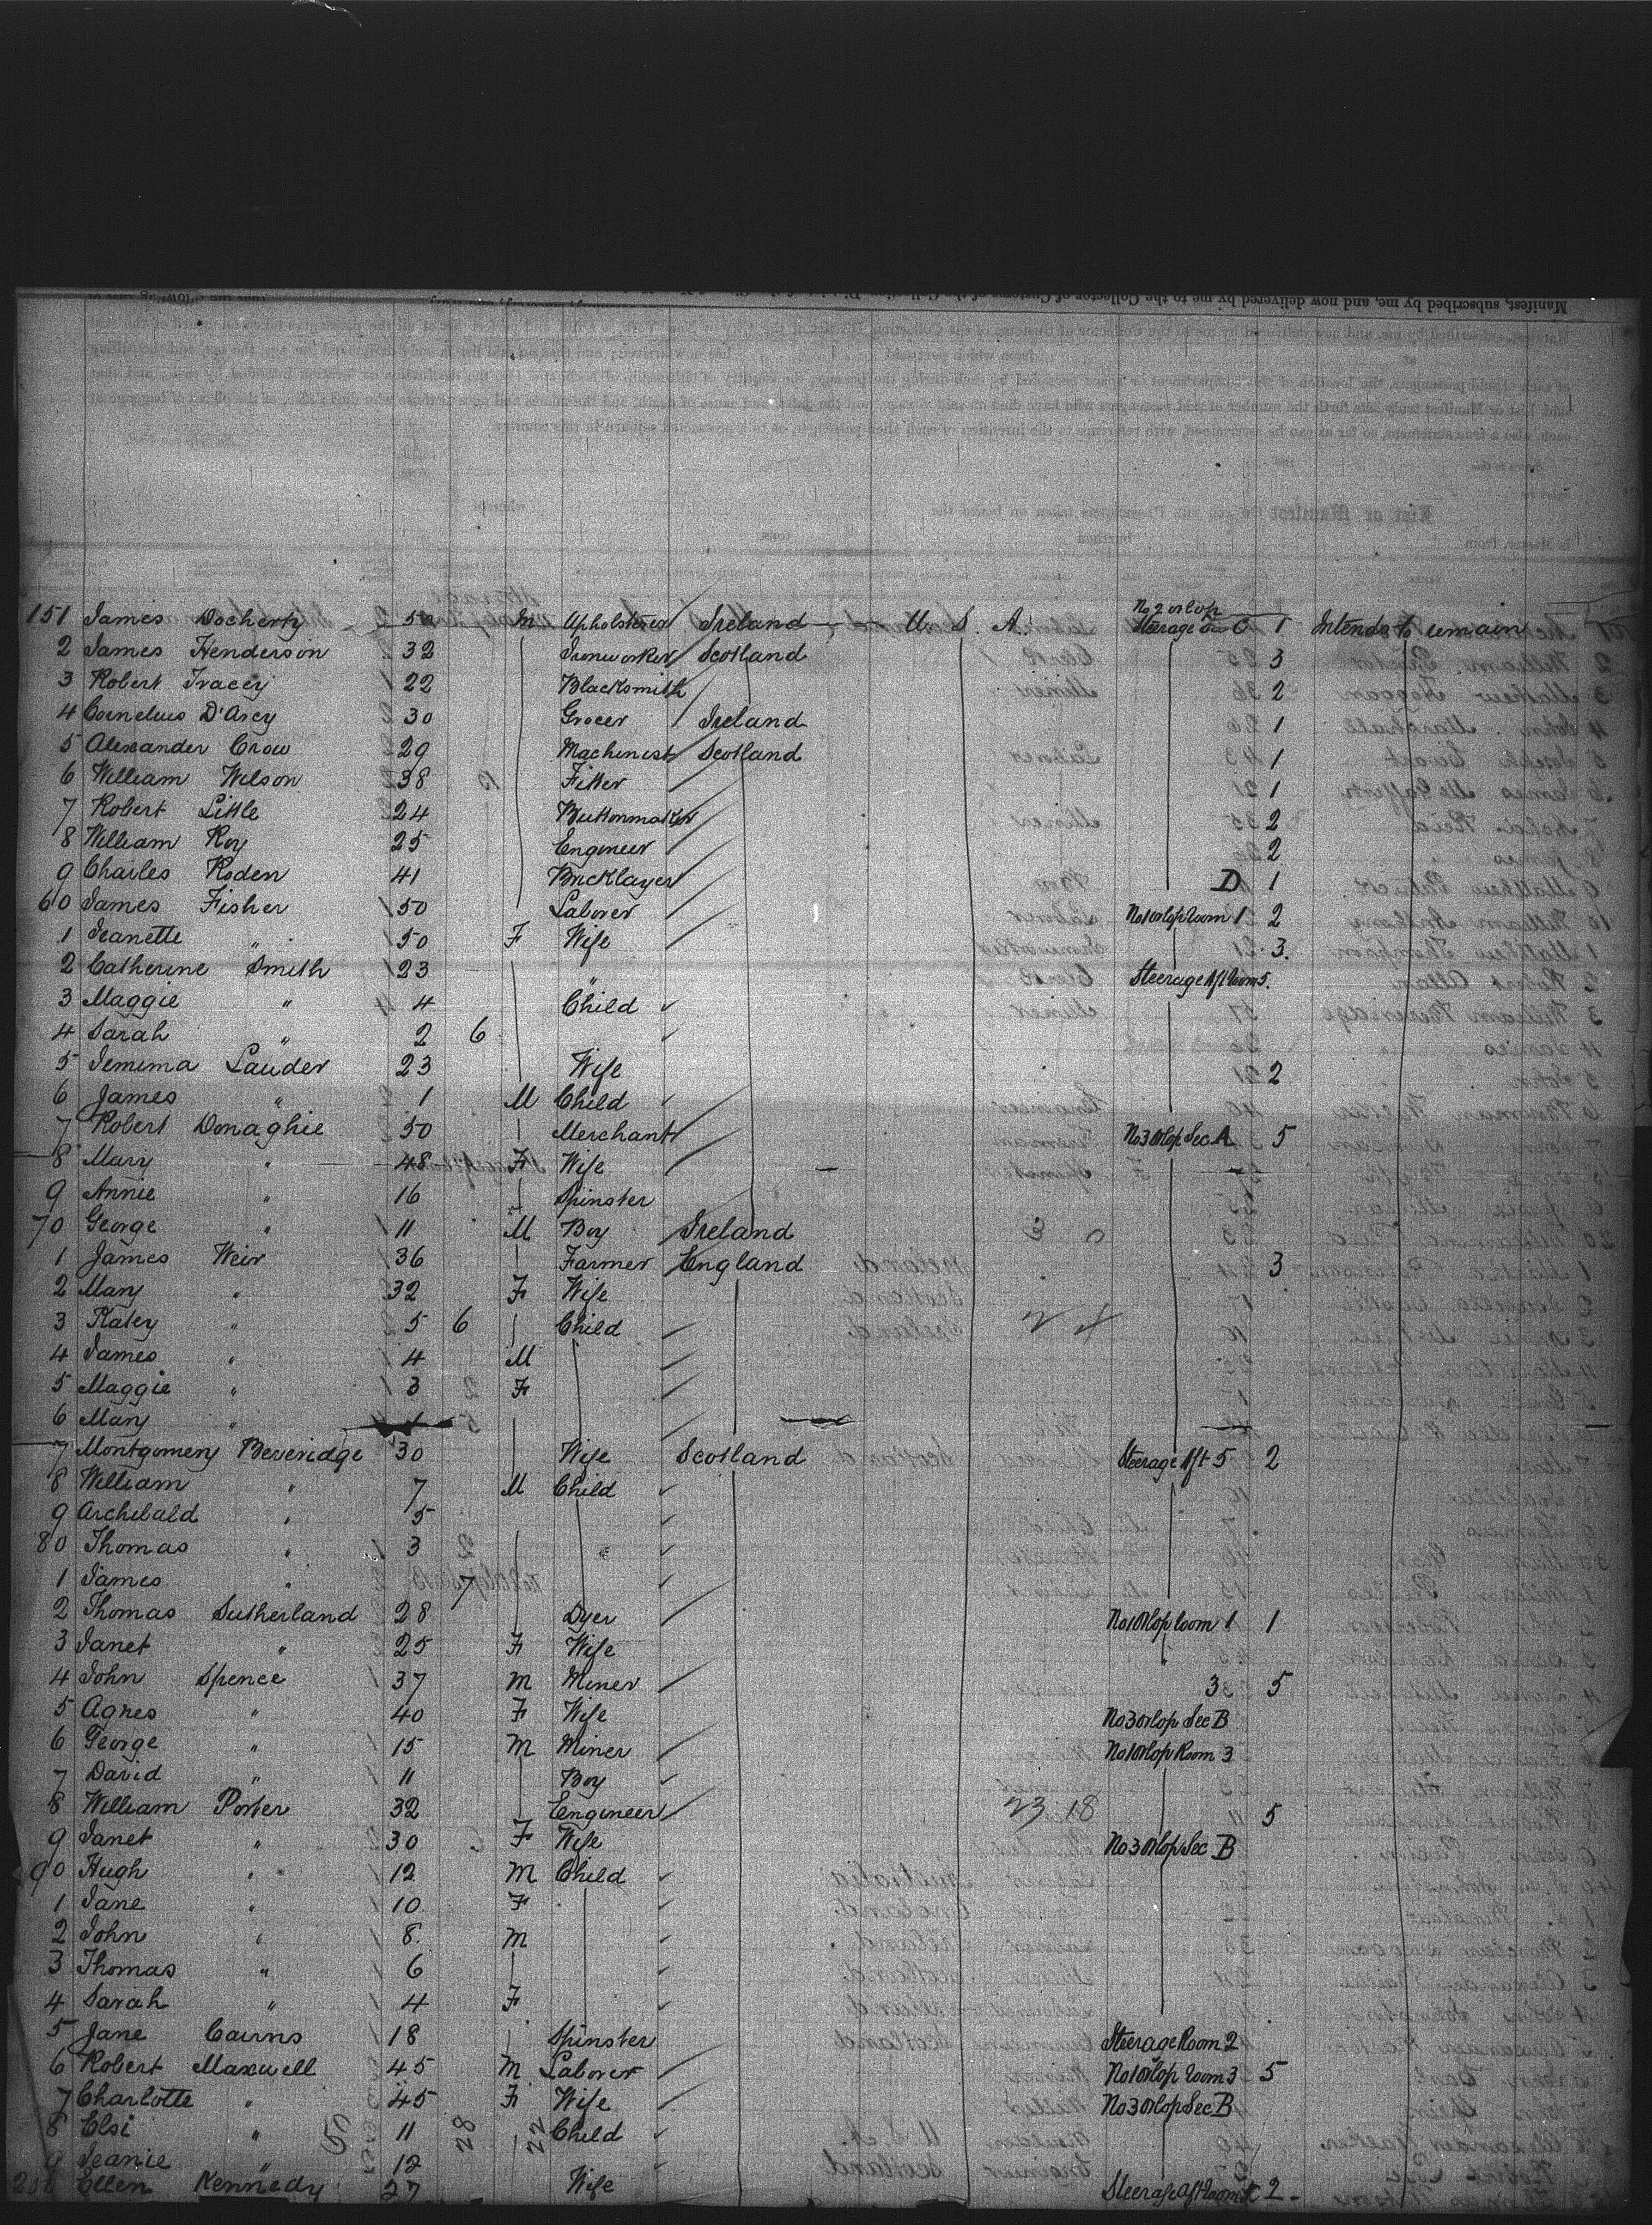 151 James Docherty 5 M Upholsterer Ireland U. S. A. No 2 orlop Steerage C 1 Intends to remain
2 James Henderson 32 Ironworker Scotland 3
3 Robert Tracey 22 Blacksmith 2
4 Cornelius D'Arcy 30 Grocer Ireland 1
5 Alexander Crow 29 Machinest Scotland 1
6 William Wilson 38 Fitter 1
7 Robert Little 24 Buttonmaker 2
8 William Roy 25 Engineer 2
9 Charles Roden 41 Bricklayer D 1
60 James Fisher 50 Laborer No1 orlop room 1 2
1 Jeanette " 50 F Wife 3.
2 Catherine Smith 23 " Steerage Aft room 5.
3 Maggie " 4 Child
4 Sarah " 2 6
5 Jemima Lauder 23 Wife 2
6 James " 1 M Child
7 Robert Donaghie 50 Merchant No3 Orlop Sec A 5
8 Mary " 48 F Wife
9 Annie " 16 Spinster
70 George " 11 M Boy Ireland
1 James Weir 36 Farmer England 3
2 Mary " 32 F Wife
3 Katey " 5 6 Child
4 James " 4 M
5 Maggie " 3 F
6 Mary "
7 Montgomery Beveridge 30 Wife Scotland Steerage Aft 5 2
8 William " 7 M Child
9 Archibald " 5
80 Thomas " 3 "
1 James " 7
2 Thomas Sutherland 28 Dyer No1 Orlop room 1 1
3 Janet " 25 F Wife "
4 John Spence 37 M Miner 3 5
5 Agnes " 40 F Wife No3 orlop Sec B
6 George " 15 M Miner No1 Orlop Room 3
7 David " 11 Boy
8 William Porter 32 Engineer 23 18 5
9 Janet " 30 F Wife No3 Orlop Sec B
90 Hugh " 12 M Child
1 Jane " 10 F
2 John " 8 M
3 Thomas " 6
4 Sarah " 4 F
5 Jane Cairns 18 Spinster Steerage Room 2
6 Robert Maxwell 45 M Laborer No1 Orlop room 3 5
7 Charlotte " 45 F Wife No3 Orlop Sec B
8 Elsi " 11 28 22 Child
9 Jeanie " 12
200 Ellen Kennedy 27 Wife Steerage Aft room 2